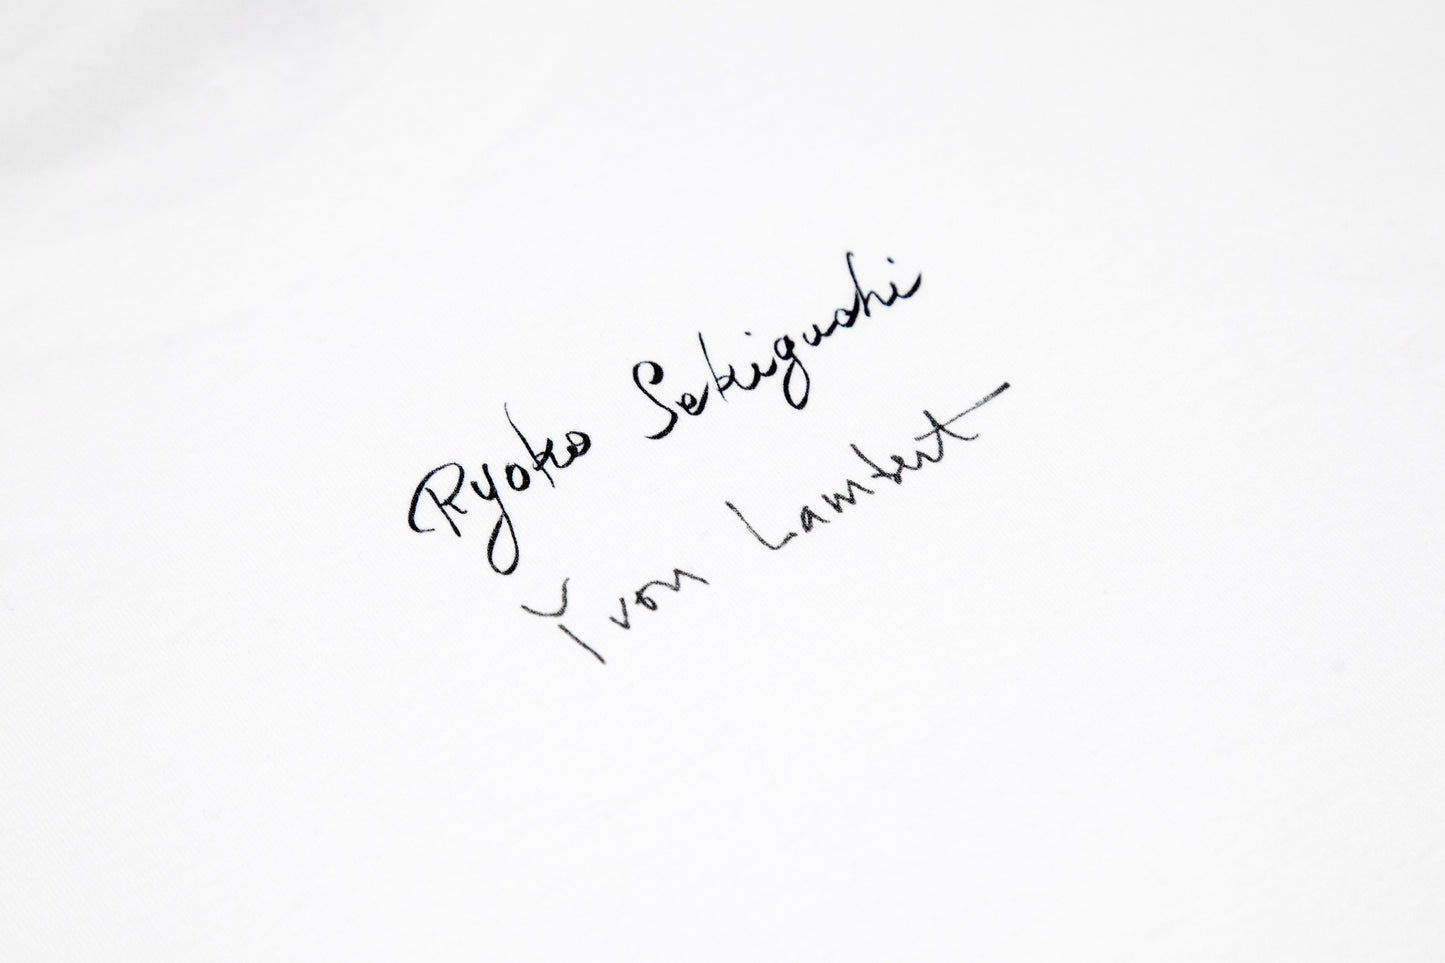 Ryoko Sekiguchi
Yvon Lambert